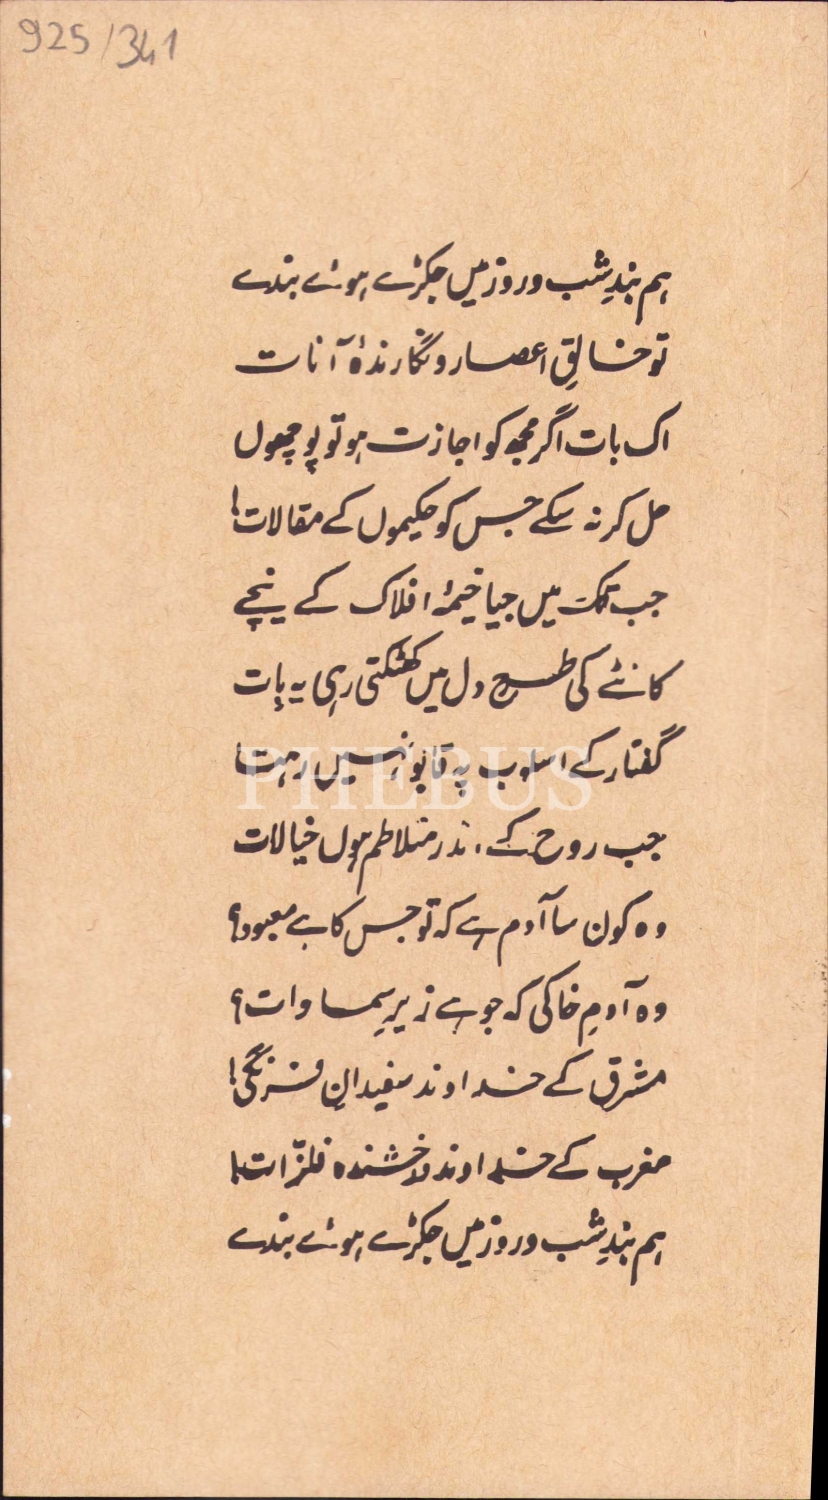 925/341
ہم بندِ شب و روز میں جکڑے ہوئے بندے
تو خالقِ اعصار و نگارندۂ آنات
اک بات اگر مجھ کو اجازت ہو تو پوچھوں
حل کر نہ سکے جس کو حکیموں کے مقالات!
جب تک میں جیا خیمۂ افلاک کے نیچے
کانٹے کی طرح دل میں کھٹکتی رہی یہ بات
گفتار کے اسلوب پہ قابو نہیں رہتا
جب روح کے اندر متلاطم ہوں خیالات
وہ کون سا آدم ہے کہ تو جس کا ہے معبود؟
وہ آدمِ خاکی کہ جو ہے زیرِ سماوات؟
مشرق کے خداوند سفیدانِ فرنگی!
مغرب کے خداوند درخشندہ فلزّات!
ہم بندِ شب و روز میں جکڑے ہوئے بندے
PHEBUS